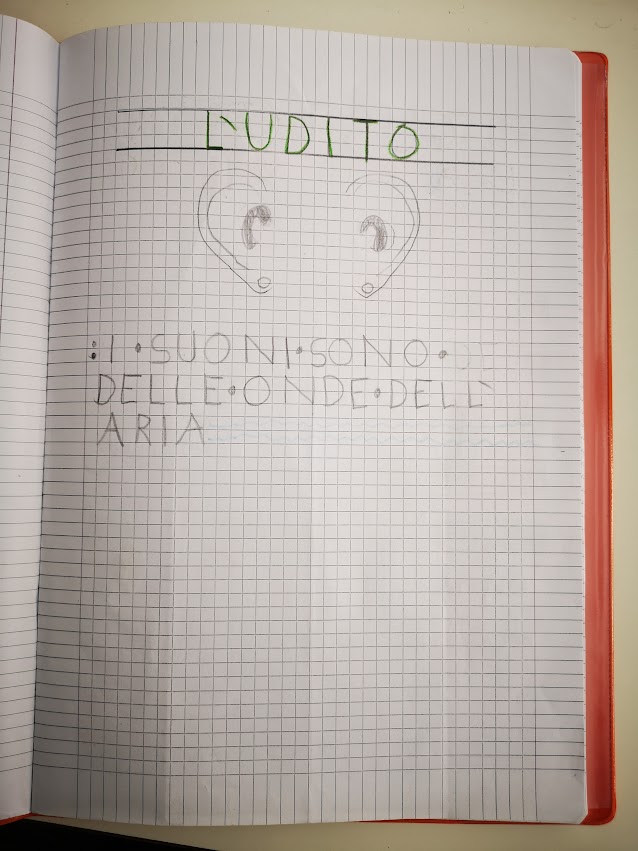 L'UDITO
:I•SUONI•SONO•
DELLE•ONDE•DELL'
ARIA